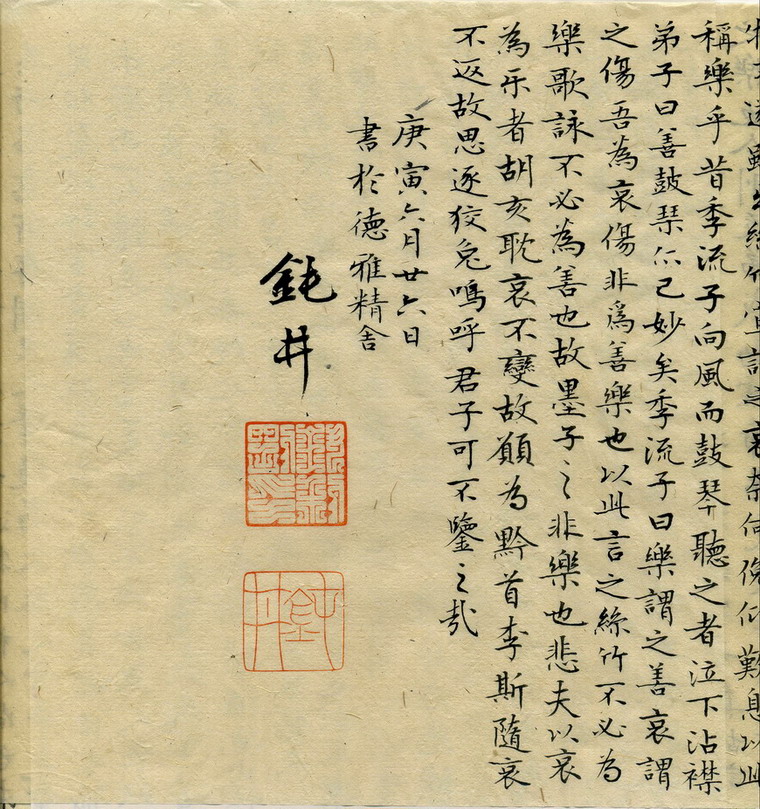 遂雖出絲竹宜謂之哀奈何俛仰歎息以此
稱樂乎昔季流子向風而鼓琴聽之者泣下沾襟
弟子曰善鼓琴亦已妙矣季流子曰樂謂之善哀謂
之傷吾為哀傷非爲善樂也以此言之絲竹不必為
樂歌詠不必為善也故墨子之非樂也悲夫以哀
為乐者胡亥耽哀不變故願為黔首李斯隨哀
不返故思逐狡兔嗚呼君子可不鑒之哉
庚寅六月廿六日
書於德雅精舍
鈍井
鈍井